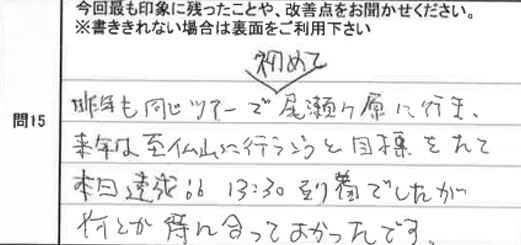 今回最も印象に残ったことや、改善点をお聞かせください。
※書ききれない場合は裏面をご利用下さい
問15
初めて
昨年も同じツアーで尾瀬ヶ原に行き、
来年は至仏山に行こうと目標をたて
本日達成!! 13:30到着でしたが
何とか待に合ってよかったです。